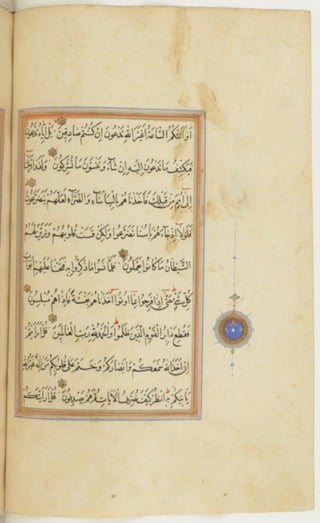 او اتتكم الساعة اغير الله تدعون ان كنتم صادقين بل اياه تدعون
فيكشف ما تدعون اليه ان شاء وتنسون ما تشركون ولقد ارسلنا
الى امم من قبلك فاخذناهم بالباساء والضراء لعلهم يتضرعون
فلولا اذ جاءهم باسنا تضرعوا ولكن قست قلوبهم وزين لهم
الشيطان ما كانوا يعملون فلما نسوا ما ذكروا به فتحنا عليهم ابواب
كل شيء حتى اذا فرحوا بما اوتوا اخذناهم بغتة فاذا هم مبلسون
فقطع دابر القوم الذين ظلموا والحمد لله رب العالمين قل ارايتم
ان اخذ الله سمعكم وابصاركم وختم على قلوبكم من اله غير الله
ياتيكم به انظر كيف نصرف الايات ثم هم يصدفون قل ارايتكم